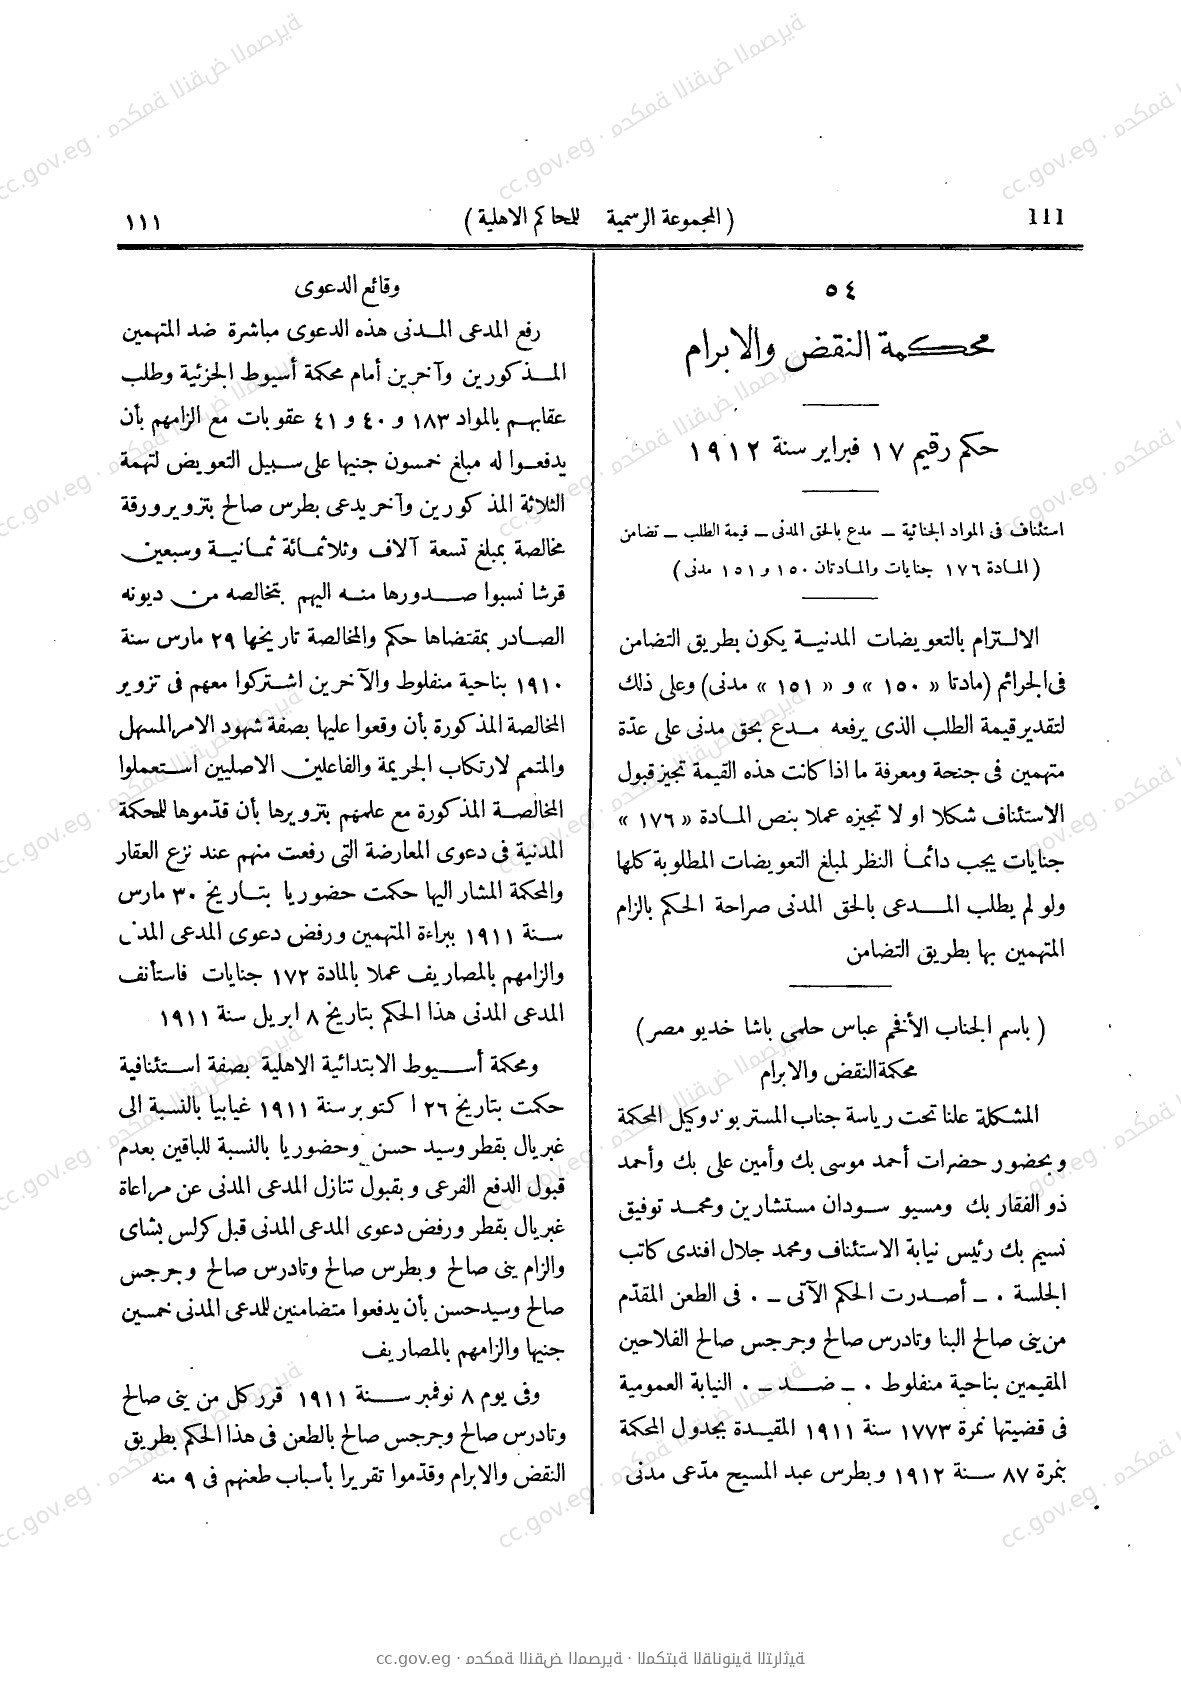 111 ( المجموعة الرسمية للمحاكم الاهلية ) ١١١
٥٤
محكمة النقض والابرام
حكم رقيم ١٧ فبراير سنة ١٩١٢
استئناف فى المواد الجنائية – مدع بالحق المدنى – قيمة الطلب – تضامن
( المادة ١٧٦ جنايات والمادتان ١٥٠ و ١٥١ مدنى )
الالتزام بالتعويضات المدنية يكون بطريق التضامن
فى الجرائم (مادتا « ١٥٠ » و « ١٥١ » مدنى) وعلى ذلك
لتقدير قيمة الطلب الذى يرفعه مدع بحق مدنى على عدّة
متهمين فى جنحة ومعرفة ما اذا كانت هذه القيمة تجيز قبول
الاستئناف شكلا او لا تجيزه عملا بنص المادة « ١٧٦ »
جنايات يجب دائما النظر لمبلغ التعويضات المطلوبة كلها
ولو لم يطلب المدعى بالحق المدنى صراحة الحكم بالزام
المتهمين بها بطريق التضامن
( باسم الجناب الأفخم عباس حلمى باشا خديو مصر )
محكمة النقض والابرام
المشكلة علنا تحت رياسة جناب المستر بوند وكيل المحكمة
وبحضور حضرات أحمد موسى بك وأمين على بك وأحمد
ذو الفقار بك ومسيو سودان مستشارين ومحمد توفيق
نسيم بك رئيس نيابة الاستئناف ومحمد جلال افندى كاتب
الجلسة ٠ – أصدرت الحكم الآتى – ٠ فى الطعن المقدّم
من ينى صالح البنا وتادرس صالح وجرجس صالح الفلاحين
المقيمين بناحية منفلوط ٠ – ضد – ٠ النيابة العمومية
فى قضيتها نمرة ١٧٧٣ سنة ١٩١١ المقيدة بجدول المحكمة
بنمرة ٨٧ سنة ١٩١٢ وبطرس عبد المسيح مدّعى مدنى
وقائع الدعوى
رفع المدعى المدنى هذه الدعوى مباشرة ضد المتهمين
المذكورين وآخرين أمام محكمة أسيوط الجزئية وطلب
عقابهم بالمواد ١٨٣ و ٤٠ و ٤١ عقوبات مع الزامهم بأن
يدفعوا له مبلغ خمسون جنيها على سبيل التعويض لتهمة
الثلاثة المذكورين وآخر يدعى بطرس صالح بتزوير ورقة
مخالصة بمبلغ تسعة آلاف وثلاثمائة ثمانية وسبعين
قرشا نسبوا صدورها منه اليهم بتخالصه من ديونه
الصادر بمقتضاها حكم والمخالصة تاريخها ٢٩ مارس سنة
١٩١٠ بناحية منفلوط والآخرين اشتركوا معهم فى تزوير
المخالصة المذكورة بأن وقعوا عليها بصفة شهود الامر المسهل
والمتمم لارتكاب الجريمة والفاعلين الاصليين استعملوا
المخالصة المذكورة مع علمهم بتزويرها بأن قدّموها للمحكمة
المدنية فى دعوى المعارضة التى رفعت منهم عند نزع العقار
والمحكمة المشار اليها حكمت حضوريا بتاريخ ٣٠ مارس
سنة ١٩١١ ببراءة المتهمين ورفض دعوى المدعى المدنى
والزامهم بالمصاريف عملا بالمادة ١٧٢ جنايات فاستأنف
المدعى المدنى هذا الحكم بتاريخ ٨ ابريل سنة ١٩١١
ومحكمة أسيوط الابتدائية الاهلية بصفة استئنافية
حكمت بتاريخ ٢٦ اكتوبر سنة ١٩١١ غيابيا بالنسبة الى
غبريال بقطر وسيد حسن وحضوريا بالنسبة للباقين بعدم
قبول الدفع الفرعى وبقبول تنازل المدعى المدنى عن مراعاة
غبريال بقطر ورفض دعوى المدعى المدنى قبل كرلس بشاى
والزام ينى صالح وبطرس صالح وتادرس صالح وجرجس
صالح وسيد حسن بأن يدفعوا متضامنين للمدعى المدنى خمسين
جنيها والزامهم بالمصاريف
وفى يوم ٨ نوفمبر سنة ١٩١١ قرر كل من ينى صالح
وتادرس صالح وجرجس صالح بالطعن فى هذا الحكم بطريق
النقض والابرام وقدّموا تقريرا بأسباب طعنهم فى ٩ منه
cc.gov.eg · محكمة النقض المصرية · المكتبة القانونية التراثية